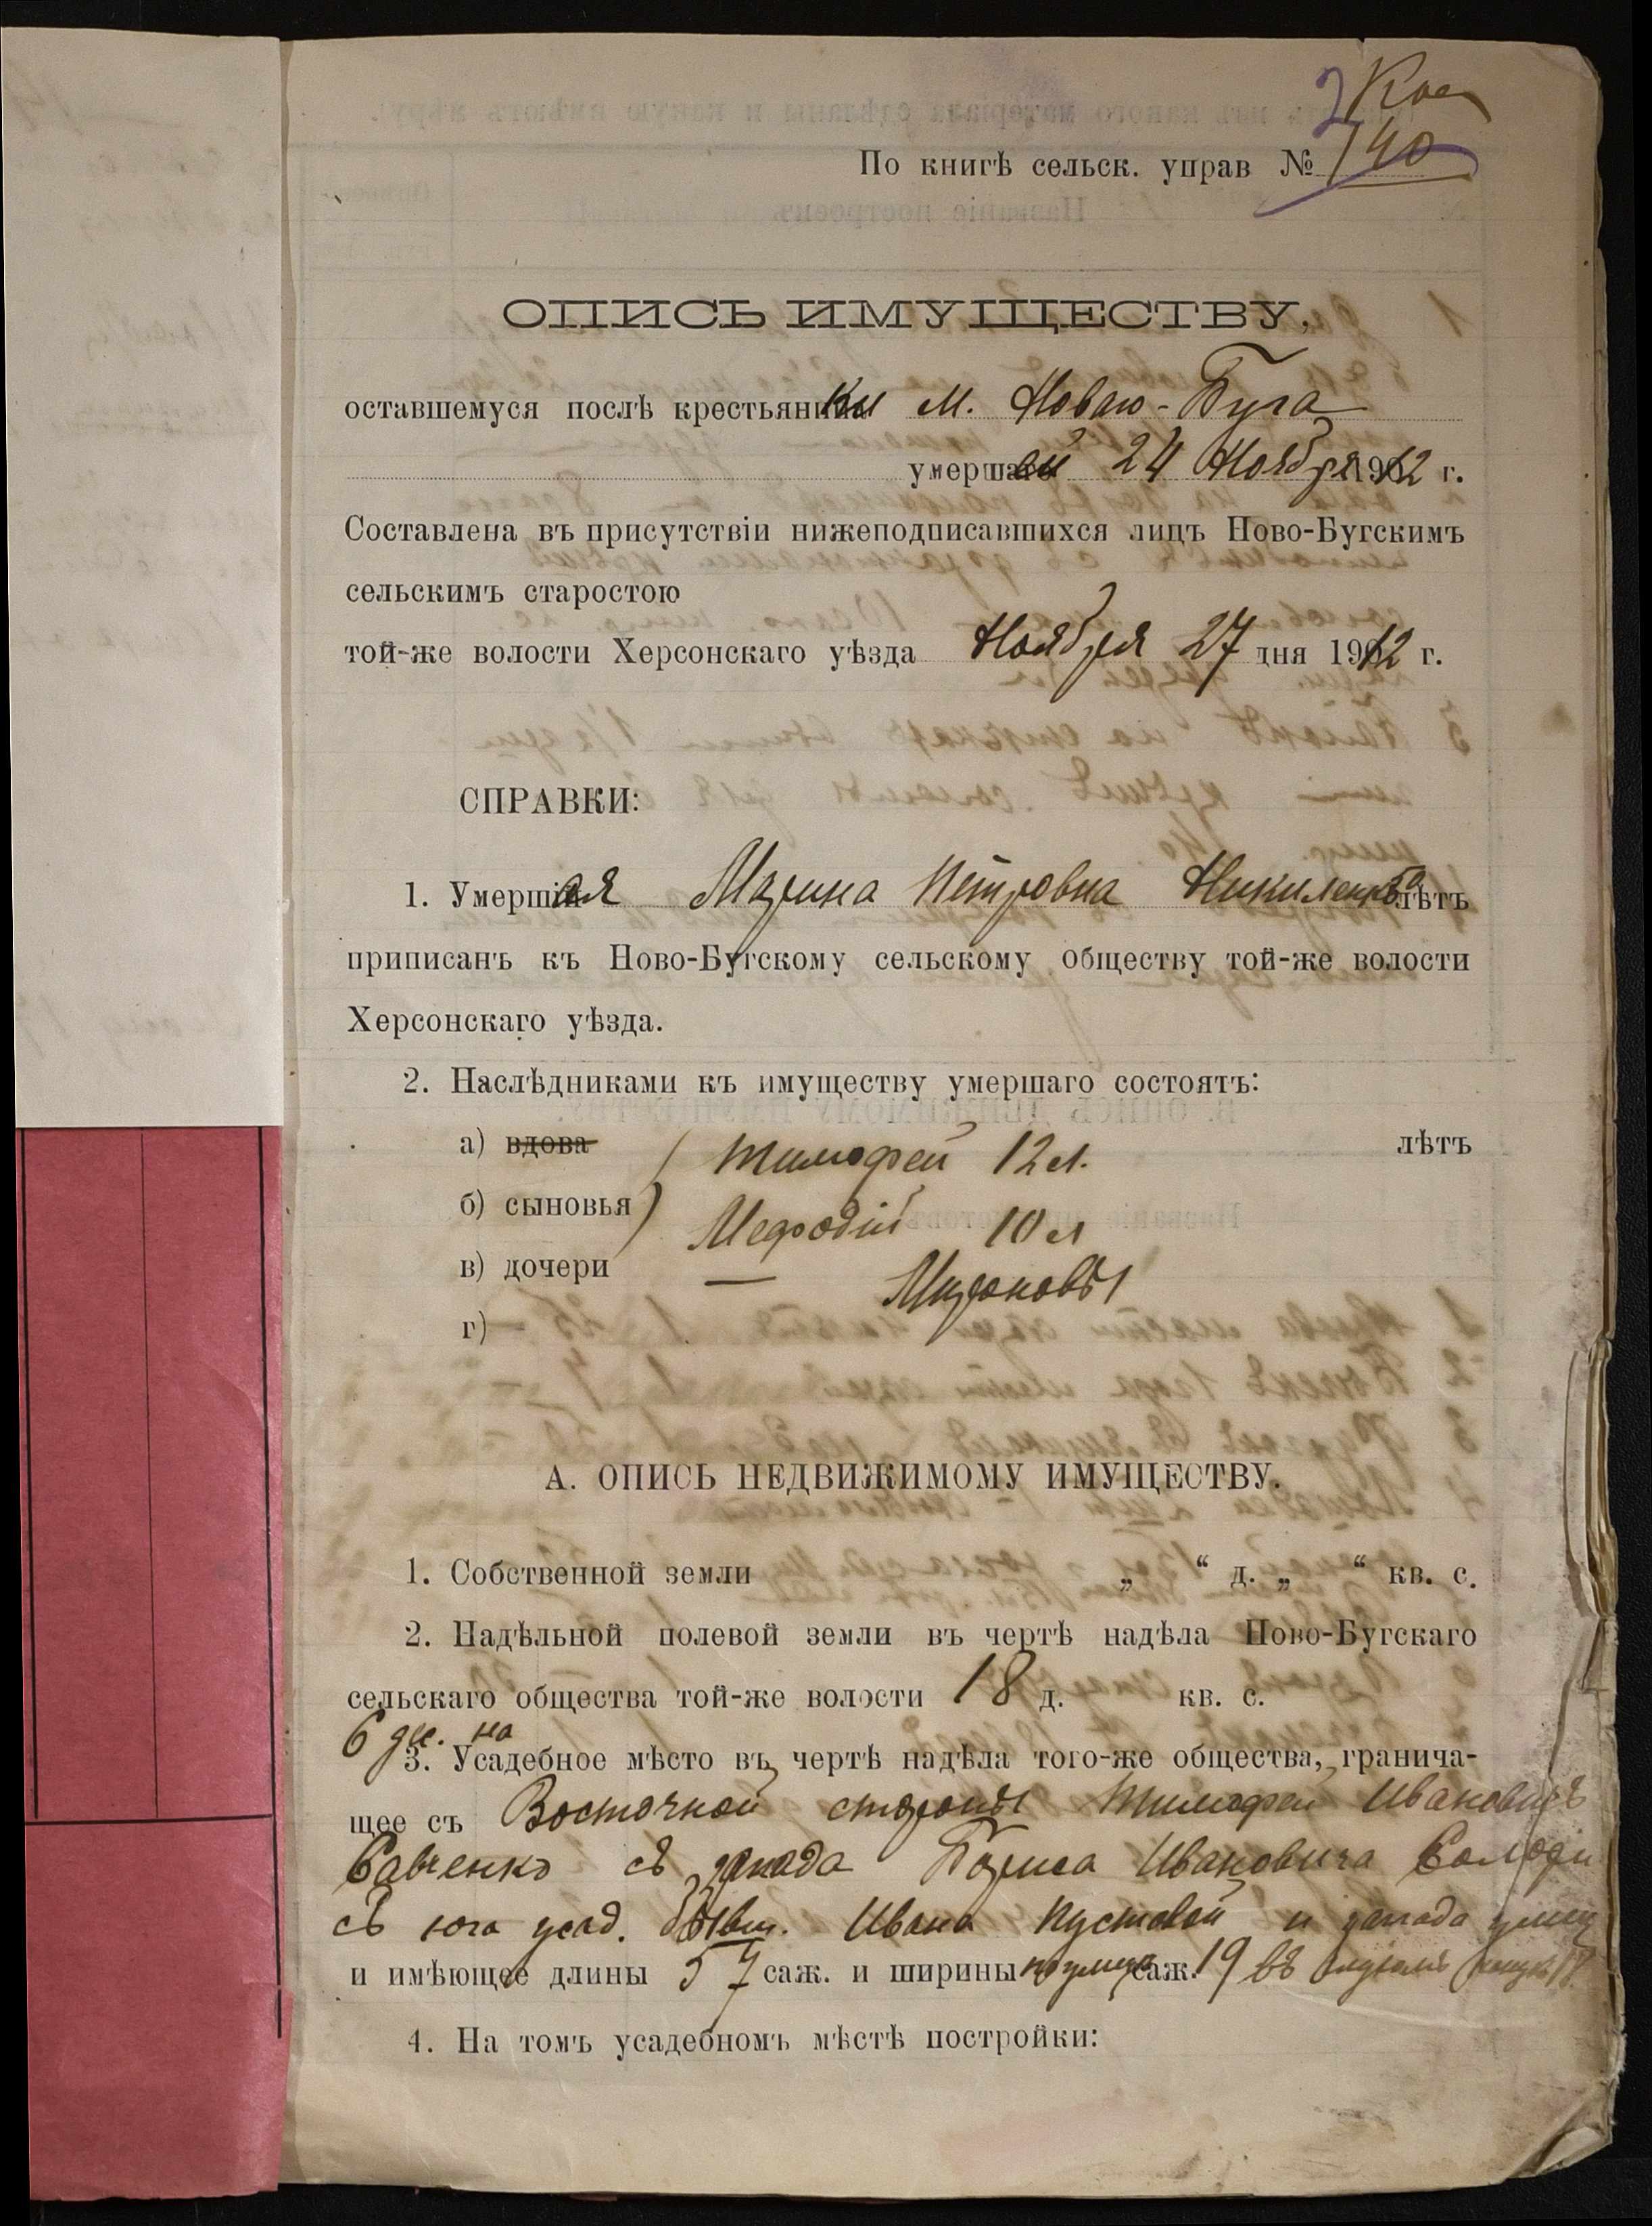 2
740
По книгѣ сельск. управ №
ОПИСЬ ИМУЩЕСТВУ,
оставшемуся послѣ крестьяники м. Новаго-Буга
умершей 24 Ноября 1912 г.
Составлена въ присутствіи нижеподписавшихся лицъ Ново-Бугскимъ
сельскимъ старостою
той-же волости Херсонскаго уѣзда Ноября 27 дня 1912 г.
СПРАВКИ:
1. Умершая Марина Петровна лѣтъ
приписанъ къ Ново-Бугскому сельскому обществу той-же волости
Херсонскаго уѣзда.
2. Наслѣдниками къ имуществу умершаго состоятъ:
а) вдова Тимофей 12 л. лѣтъ
б) сыновья Мефодій 10 л
в) дочери — Мироновы
г)
А. ОПИСЬ НЕДВИЖИМОМУ ИМУЩЕСТВУ.
1. Собственной земли „ “ д. „ “ кв. с.
2. Надѣльной полевой земли въ чертѣ надѣла Ново-Бугскаго
сельскаго общества той-же волости 18 д. кв. с.
6 на
3. Усадебное мѣсто въ чертѣ надѣла того-же общества, гранича-
щее съ Восточной стороны Тимофей Ивановичъ
Савченко съ запада Бориса Ивановича
съ юга усад. бывш. Ивана Пустовой и запада
и имѣющее длины 57 саж. и ширины по улице саж. 19 въ
4. На томъ усадебномъ мѣстѣ постройки: